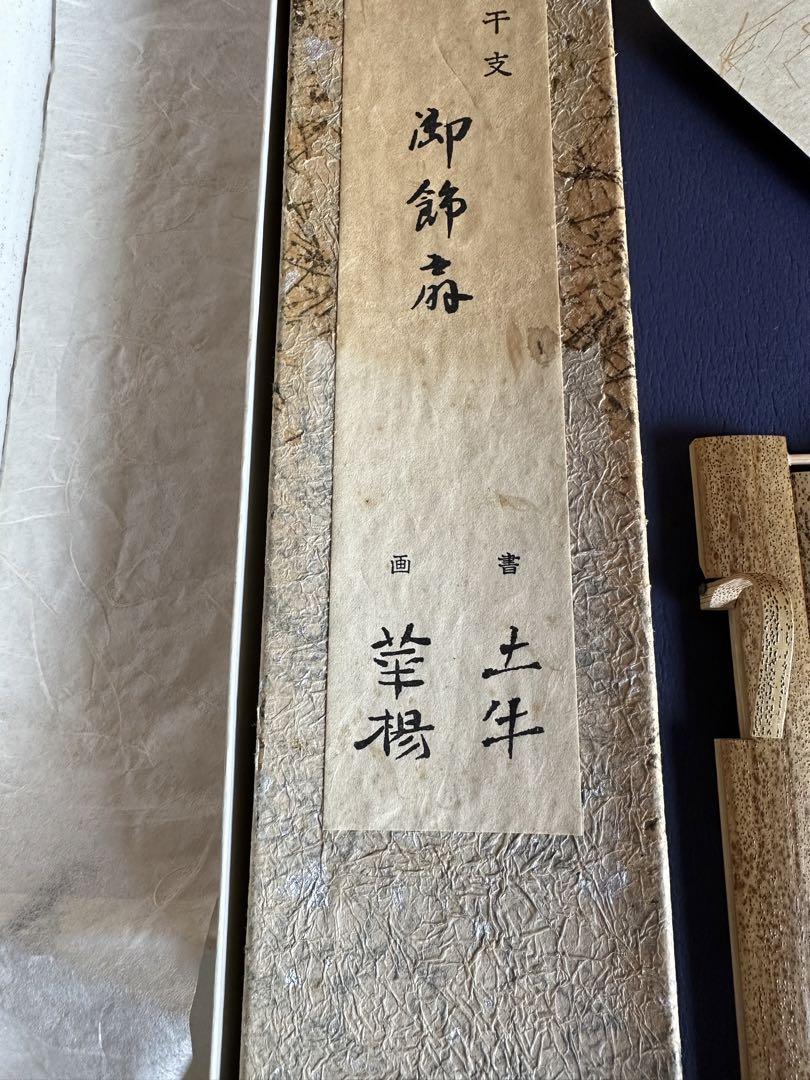 干支
御飾扇
書 土牛
画 華楊